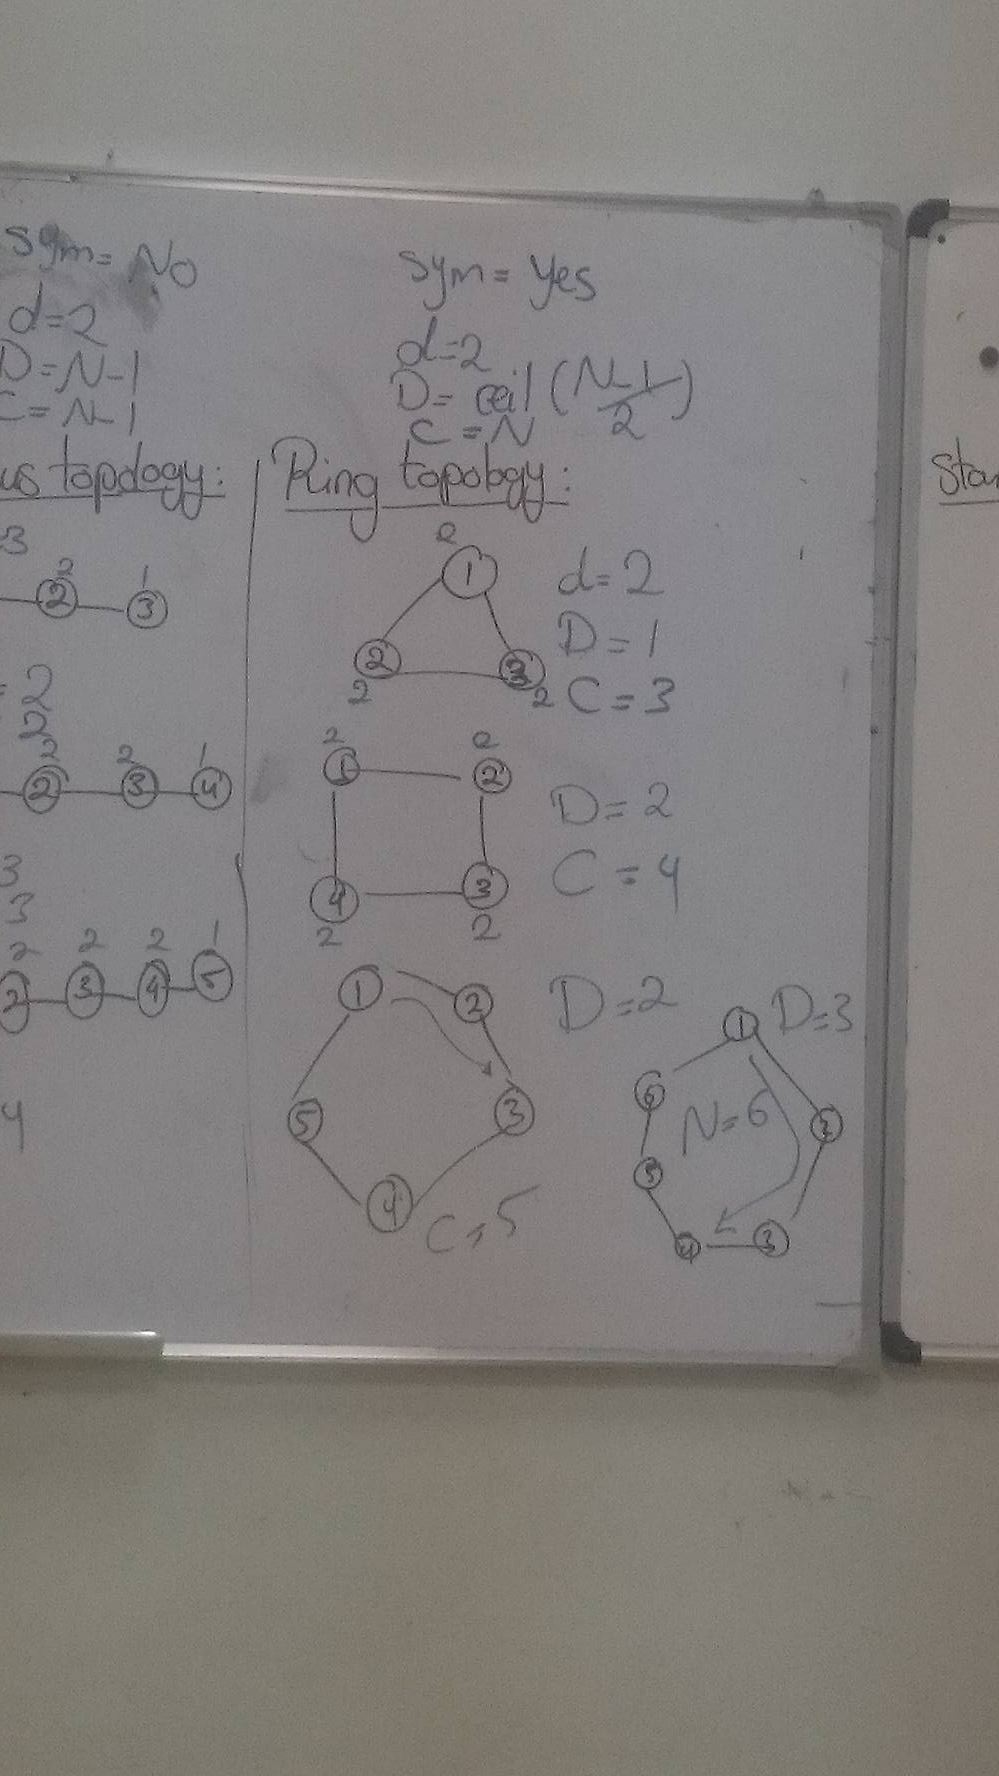 sym= No
d=2
D=N-1
C=N-1
us topology:
3
2 1
2 3
=2
2
2 2 1
2 3 4
3
3
2 2 2 1
2 3 4 5
4
sym= Yes
d=2
D= ceil (N-1/2)
C=N
Ring topology:
2
1
2 3
2 2
d=2
D=1
C=3
2 2
1 2
4 3
2 2
D=2
C=4
1 2
5 3
4
D=2
C=5
1 D=3
6 2
N=6
5
4 3
Star